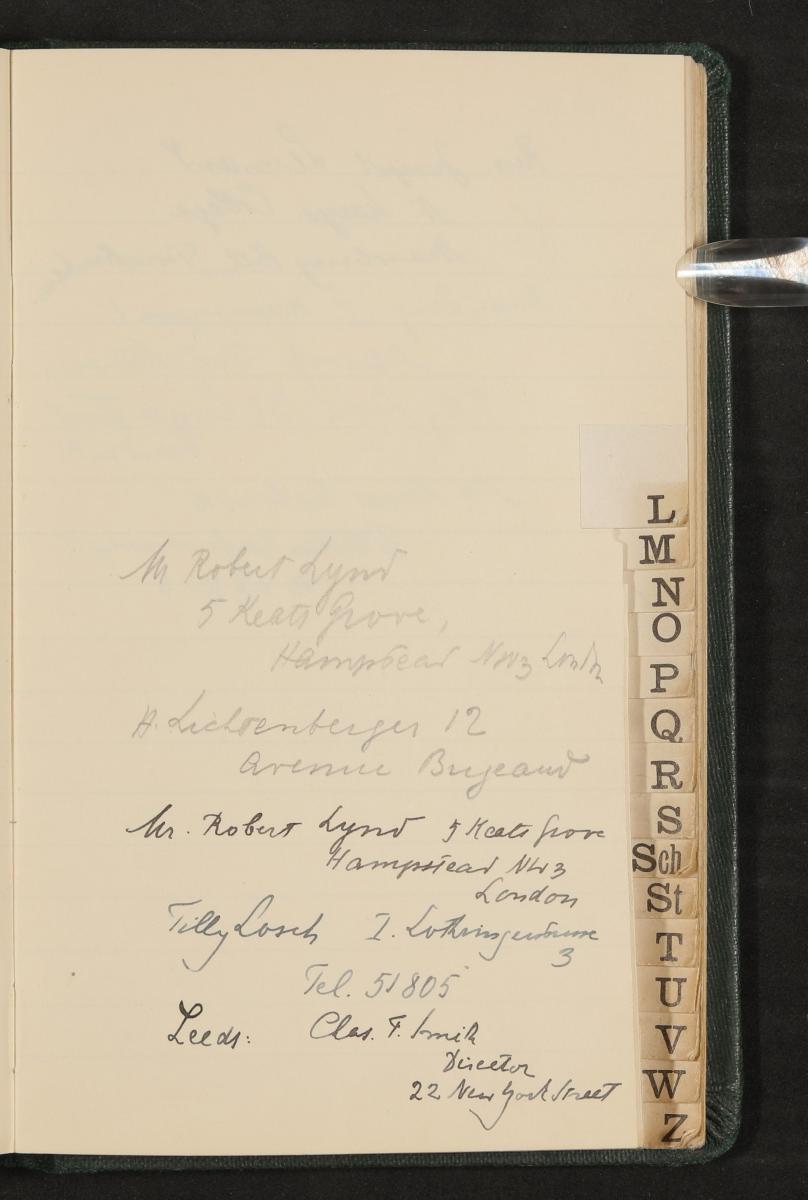 Mr Robert Lynd
5 Keats Grove,
Hampstead NW3 London
H. Lichtenberger 12
Avenue Bugeaud
Mr. Robert Lynd 5 Keats Grove
Hampstead NW3
London
Tilly Losch I. Lothringerstrasse
3
Tel. 51805
Leeds: Chas. F. Smith
Director
22 New York Street
L
M
N
O
P
Q
R
S
Sch
St
T
U
V
W
Z